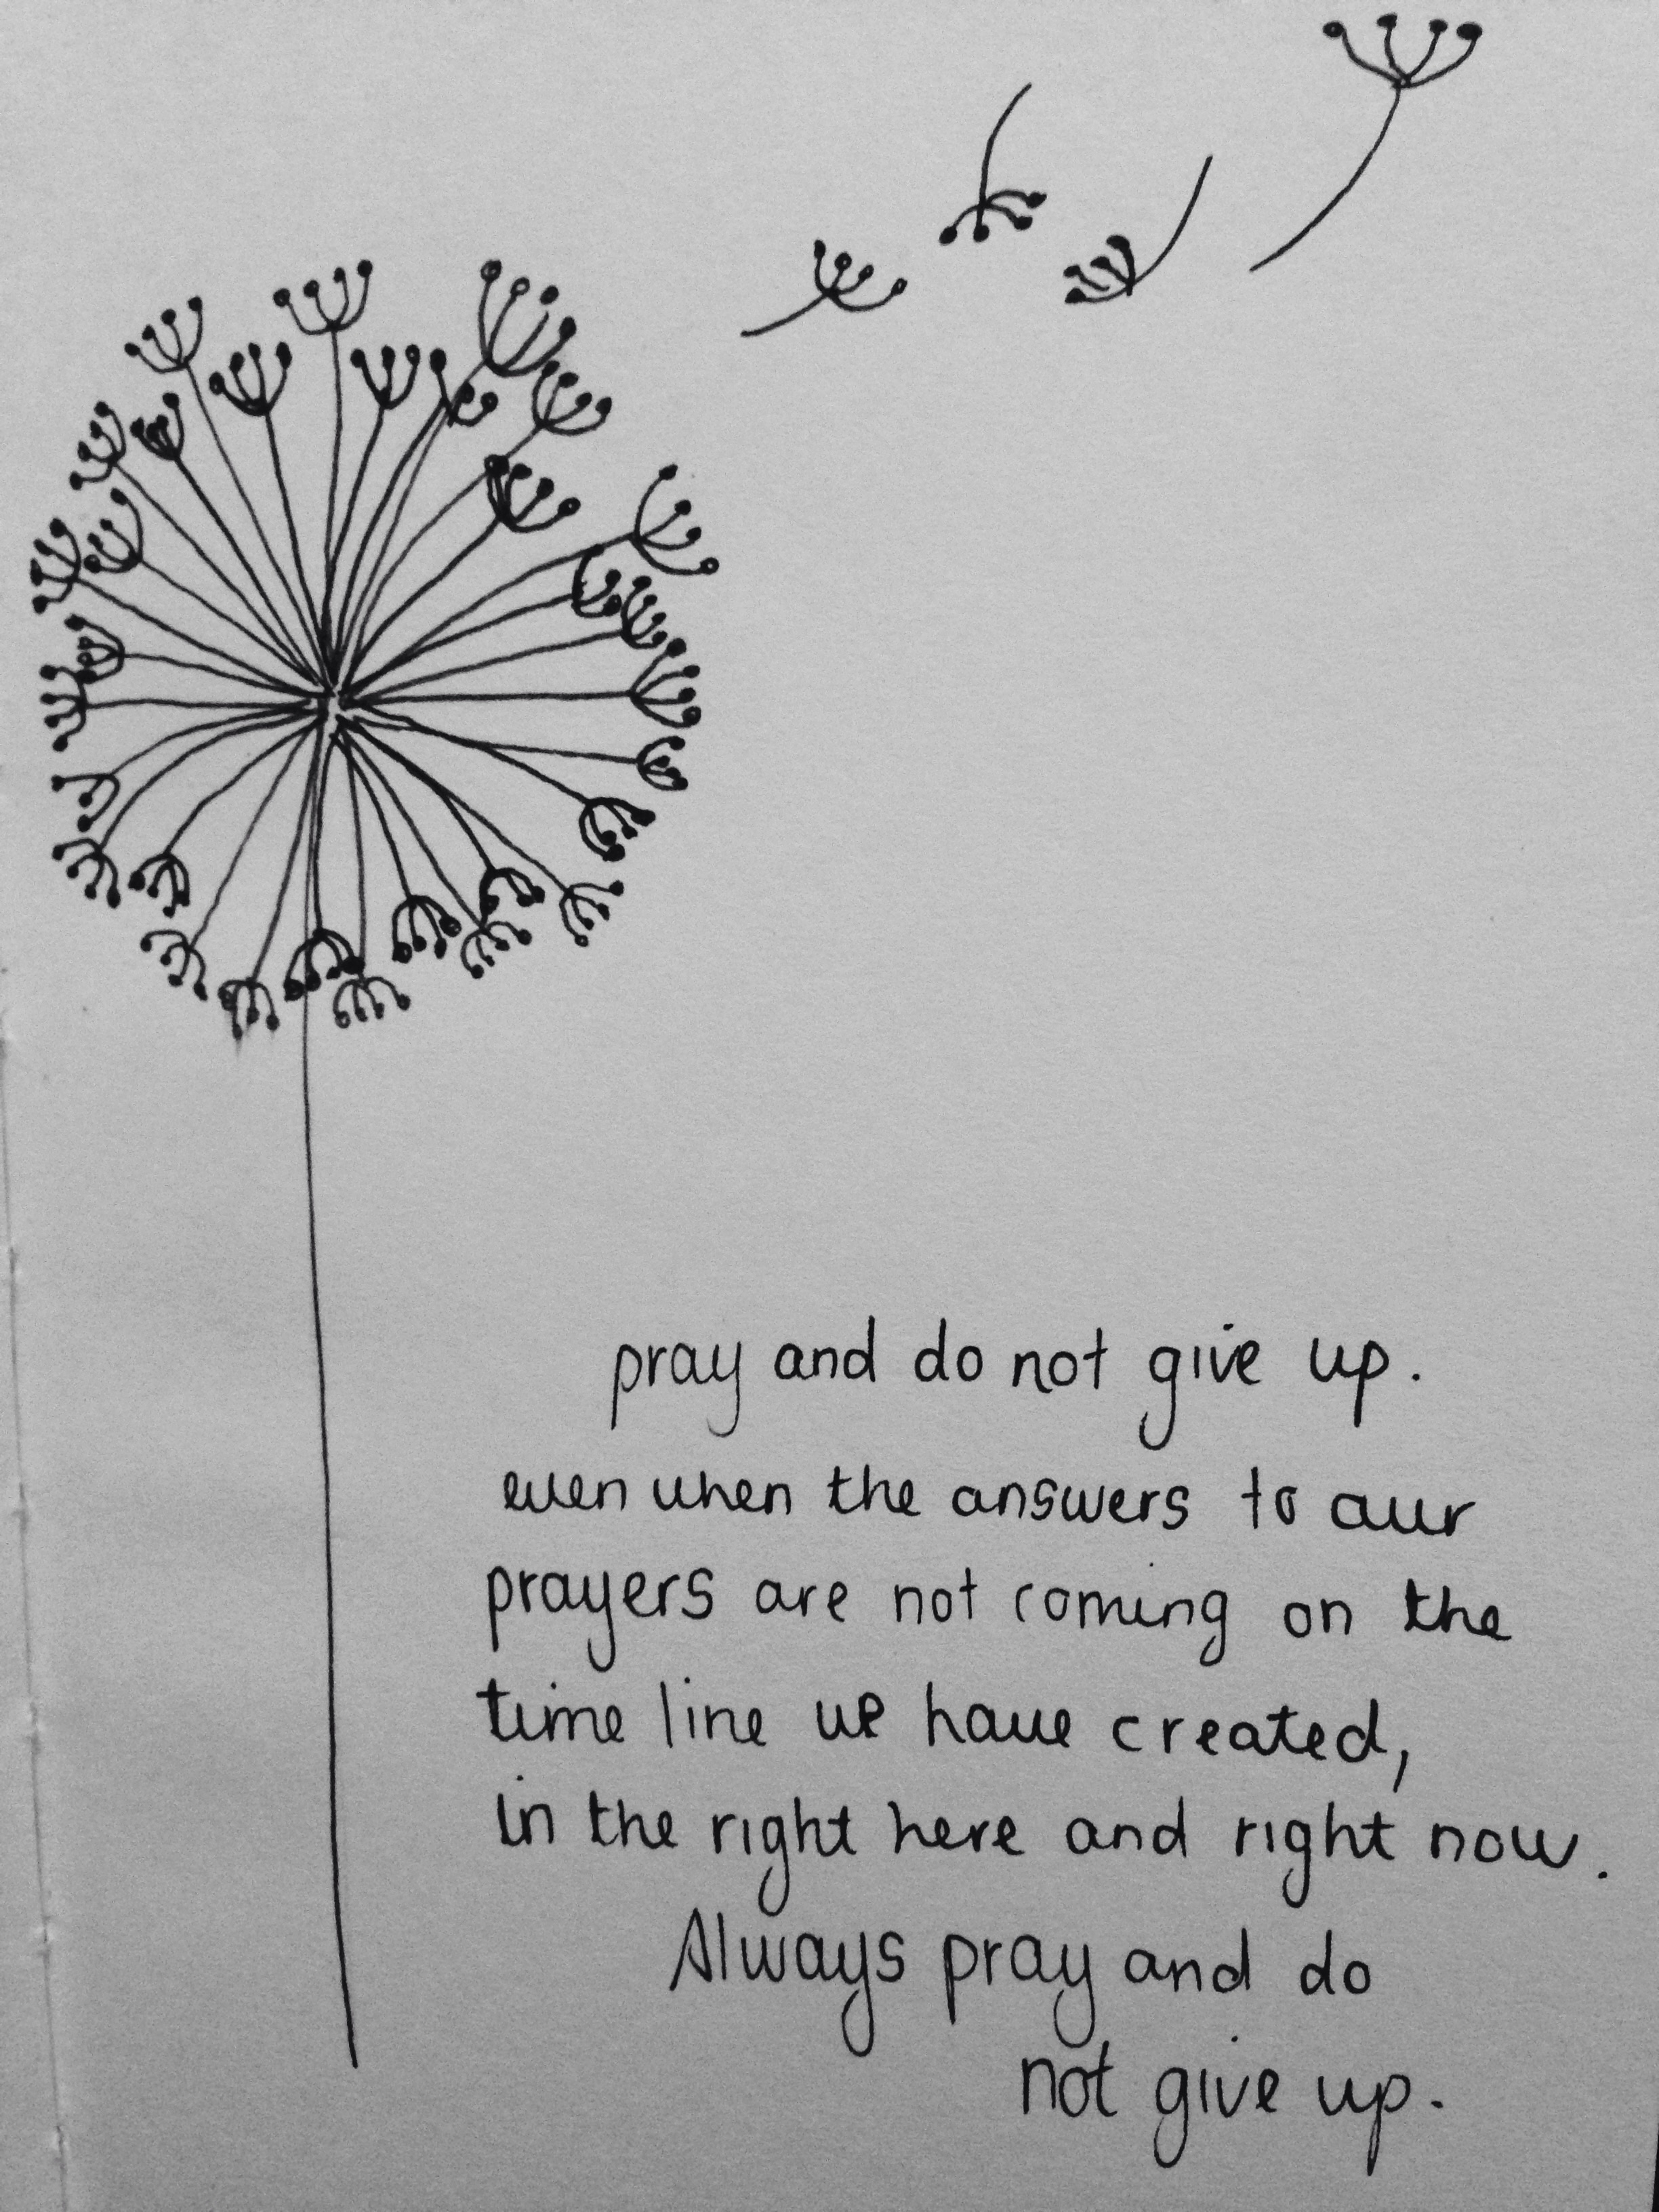 pray and do not give up.
even when the answers to our
prayers are not coming on the
time line we have created,
in the right here and right now.
Always pray and do
not give up.